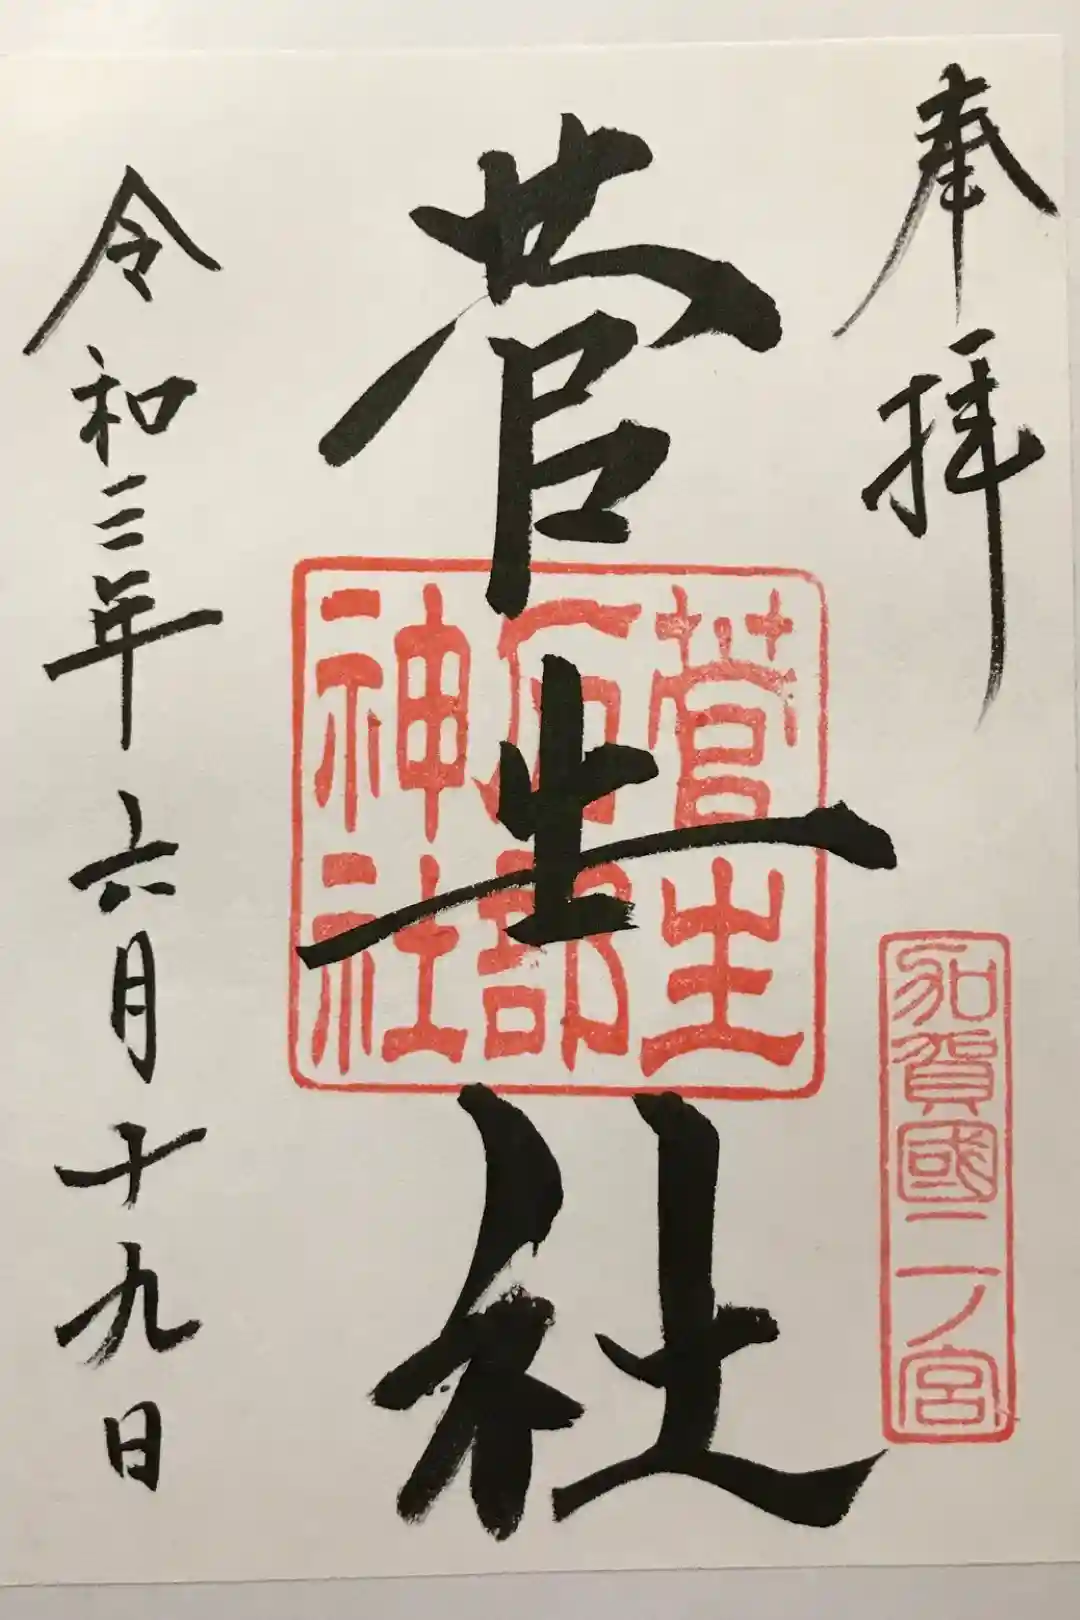 奉拝
加賀國二ノ宮
菅生社
菅生
石部
神社
令和三年六月十九日